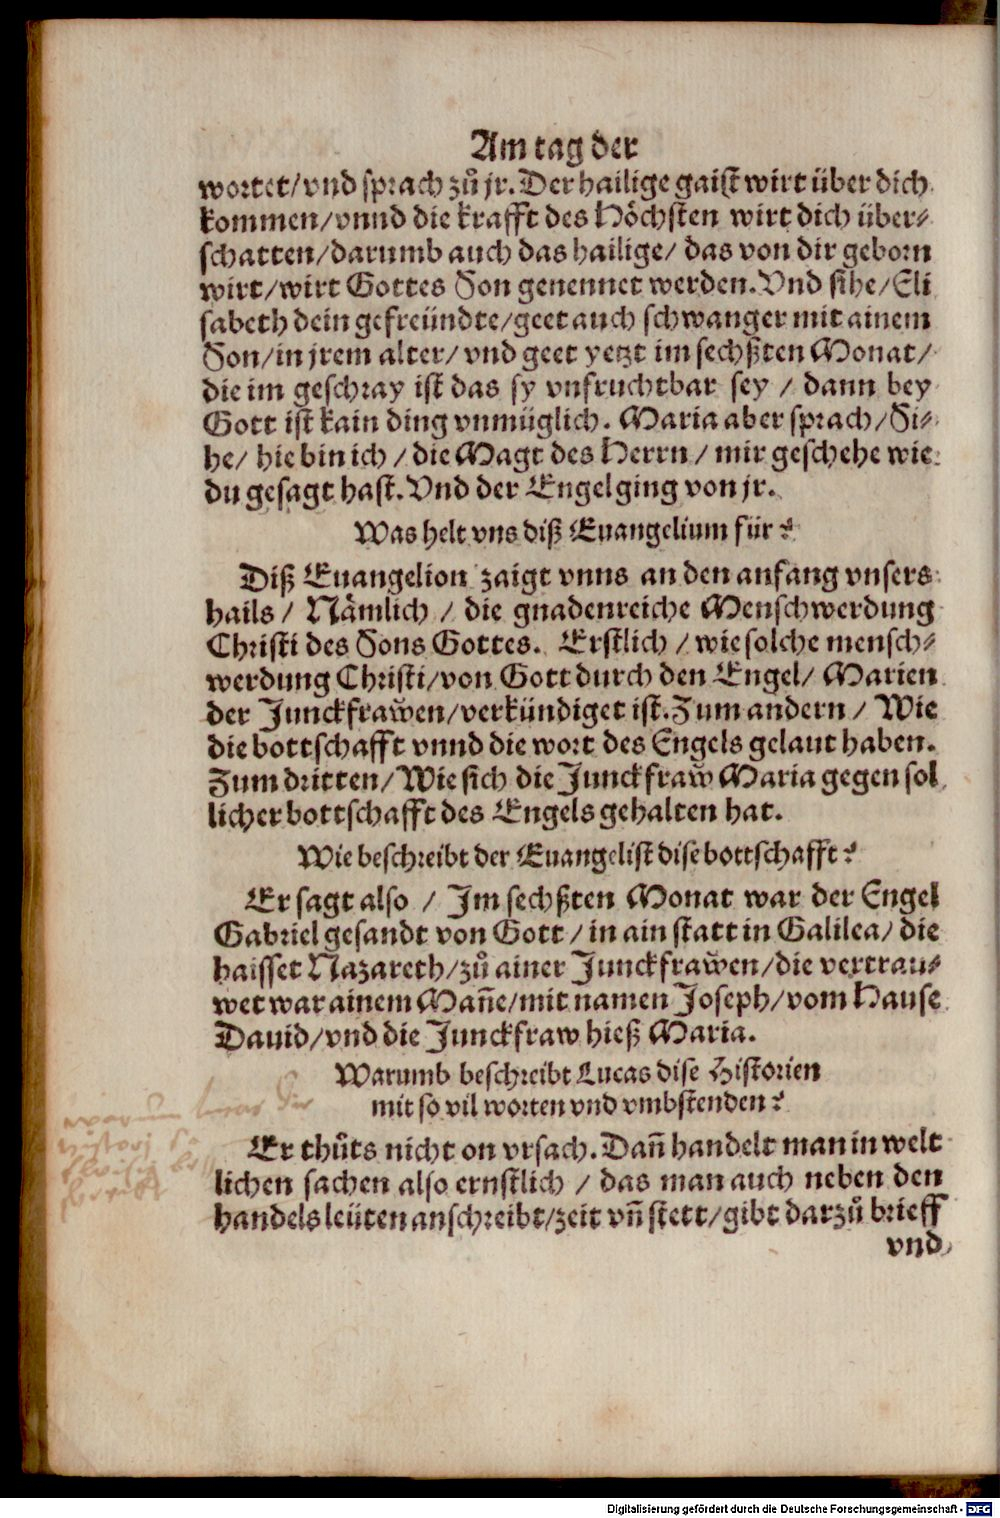 Am tag der
wortet/vnd sprach zů jr. Der hailige gaist wirt über dich
kommen/vnnd die krafft des Höchsten wirt dich über-
schatten/darumb auch das hailige/ das von dir geborn
wirt/wirt Gottes Son genennet werden. Vnd sihe/Eli
sabeth dein gefreündte/geet auch schwanger mit ainem
Son/in jrem alter/ vnd geet yetzt im sechßten Monat/
die im geschray ist das sy vnfruchtbar sey / dann bey
Gott ist kain ding vnmüglich. Maria aber sprach/Si-
he/ hie bin ich / die Magt des Herrn / mir geschehe wie
du gesagt hast. Vnd der Engel ging von jr.
Was helt vns diß Euangelium für?
Diß Euangelion zaigt vnns an den anfang vnsers
hails / Nämlich / die gnadenreiche Menschwerdung
Christi des Sons Gottes. Erstlich / wie solche mensch-
werdung Christi/von Gott durch den Engel/ Marien
der Junckfraẅen/verkündiget ist. Zum andern / Wie
die bottschafft vnnd die wort des Engels gelaut haben.
Zum dritten/Wie sich die Junckfraẅ Maria gegen sol
licher bottschafft des Engels gehalten hat.
Wie beschreibt der Euangelist dise bottschafft?
Er sagt also / Im sechßten Monat war der Engel
Gabriel gesandt von Gott / in ain statt in Galilea/ die
haisset Nazareth/zů ainer Junckfraẅen/die vertrau-
wet war ainem Mañe/mit namen Joseph/vom Hause
Dauid/vnd die Junckfraw hieß Maria.
Warumb beschreibt Lucas dise Historien
mit so vil worten vnd vmbstenden?
warum lucas die
histori so
Er thůts nicht on vrsach. Dañ handelt man in welt
lichen sachen also ernstlich / das man auch neben den
handels leüten anschreibt/zeit vñ stett/gibt darzů brieff
vnd
Digitalisierung gefördert durch die Deutsche Forschungsgemeinschaft - DFG